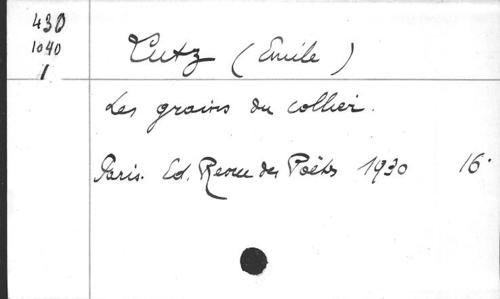 430
1040
1
Lutz (Emile)
Les grains du collier.
Paris. Ed. Revue des Poètes 1930 16°